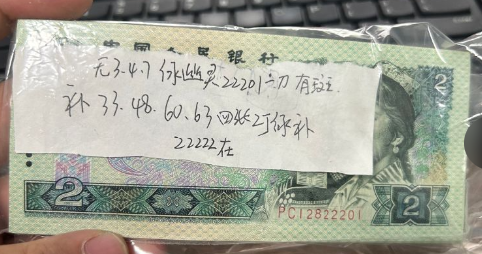 中国人民银行
无3.4.7绿幽灵22201刀有斑
补33.48.60.63四张2J绿补
22222在
2
2
PC12822201
2